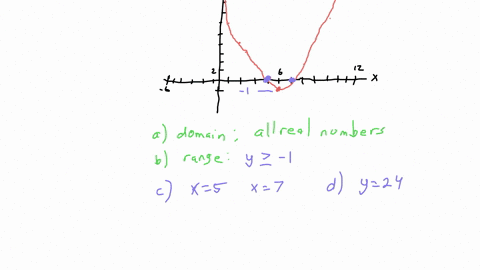 2
6
12
x
-6
-1
a) domain: all real numbers
b) range: y ≥ -1
c) x=5 x=7 d) y=24